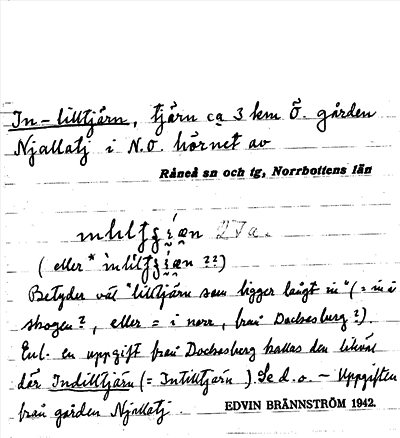 In-lilltjärn, tjärn ca 3 km Ö. gården
Njallatj i N.O. hörnet av
Råneå sn och tg, Norrbottens län
2 Ta.
( eller * ??)
Betyder väl "lilltjärn som ligger långt in" (= in i
skogen?, eller = i norr, från Docksberg?)
Enl. en uppgift från Docksberg kallas den likväl
där Indilltjärn (= Intilltjärn). Se d.o. – Uppgiften
från gården Njallatj.
EDVIN BRÄNNSTRÖM 1942.